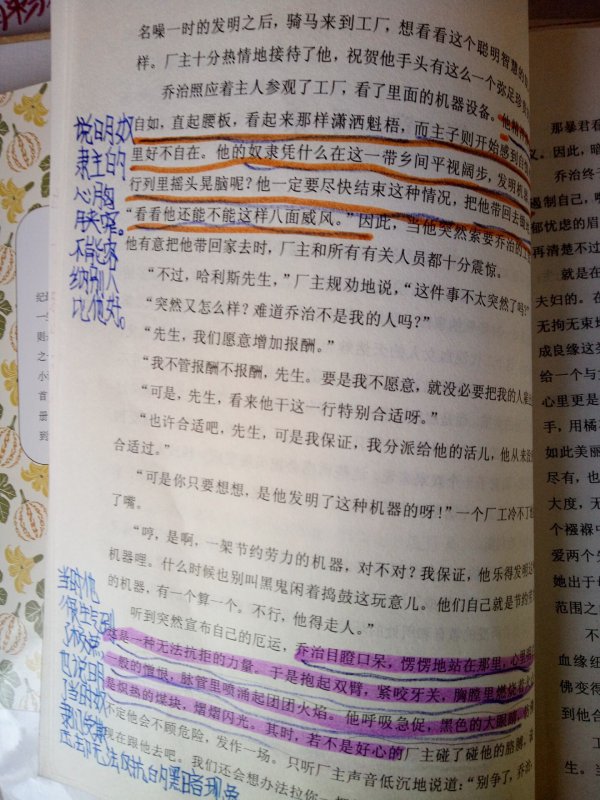 名噪一时的发明之后，骑马来到工厂，想看看这个聪明智慧的
样。厂主十分热情地接待了他，祝贺他手头有这么一个弥足珍贵
乔治照应着主人参观了工厂，看了里面的机器设备。他
自如，直起腰板，看起来那样潇洒魁梧，而主子则开始感到自
里好不自在。他的奴隶凭什么在这一带乡间平视阔步，发明机
行列里摇头晃脑呢？他一定要尽快结束这种情况，把他带回去
“看看他还能不能这样八面威风。”因此，当他突然索要乔治的工
他有意把他带回家去时，厂主和所有有关人员都十分震惊。
“不过，哈利斯先生，”厂主规劝地说，“这件事不太突然了吗？”
“突然又怎么样？难道乔治不是我的人吗？”
“先生，我们愿意增加报酬。”
“我不管报酬不报酬，先生。要是我不愿意，就没必要把我的人雇
“可是，先生，看来他干这一行特别合适呀。”
“也许合适吧，先生，可是我保证，我分派给他的活儿，他从来没
合适过。”
“可是你只要想想，是他发明了这种机器的呀！”一个厂工冷不丁
了嘴。
“哼，是啊，一架节约劳力的机器，对不对？我保证，他乐得发明这
机器哩。什么时候也别叫黑鬼闲着捣鼓这玩意儿。他们自己就是节约
的机器，有一个算一个。不行，他得走人。”
听到突然宣布自己的厄运，乔治目瞪口呆，愣愣地站在那里，心里
是一种无法抗拒的力量。于是抱起双臂，紧咬牙关，胸膛里燃烧着火
一般的憎恨，脉管里喷涌起团团火焰。他呼吸急促，黑色的大眼睛
是炽热的煤块，熠熠闪光。其时，若不是好心的厂主碰了碰他的胳膊，
不定他会不顾危险，发作一场。只听厂主声音低沉地说道：“别争了，乔治，
现在跟他去吧。我们还会想办法拉你一
说明奴
隶主的
心胸
狭窄。
不能容
纳别人
比他好。
当时他
也说明
了当时奴
那暴君看
义。因此，暗
乔治终于
遏制自己，
郁忧虑的眉
再清楚不过
就是在
夫妇的。在
无拘无束
成良缘这
给一个与
心里更是
手，用橘
如此美丽
尽有，也
大度，无
个襁褓中
爱两个先
她出于母
范围之
不
血缘纽
佛变得
到他合
工
当